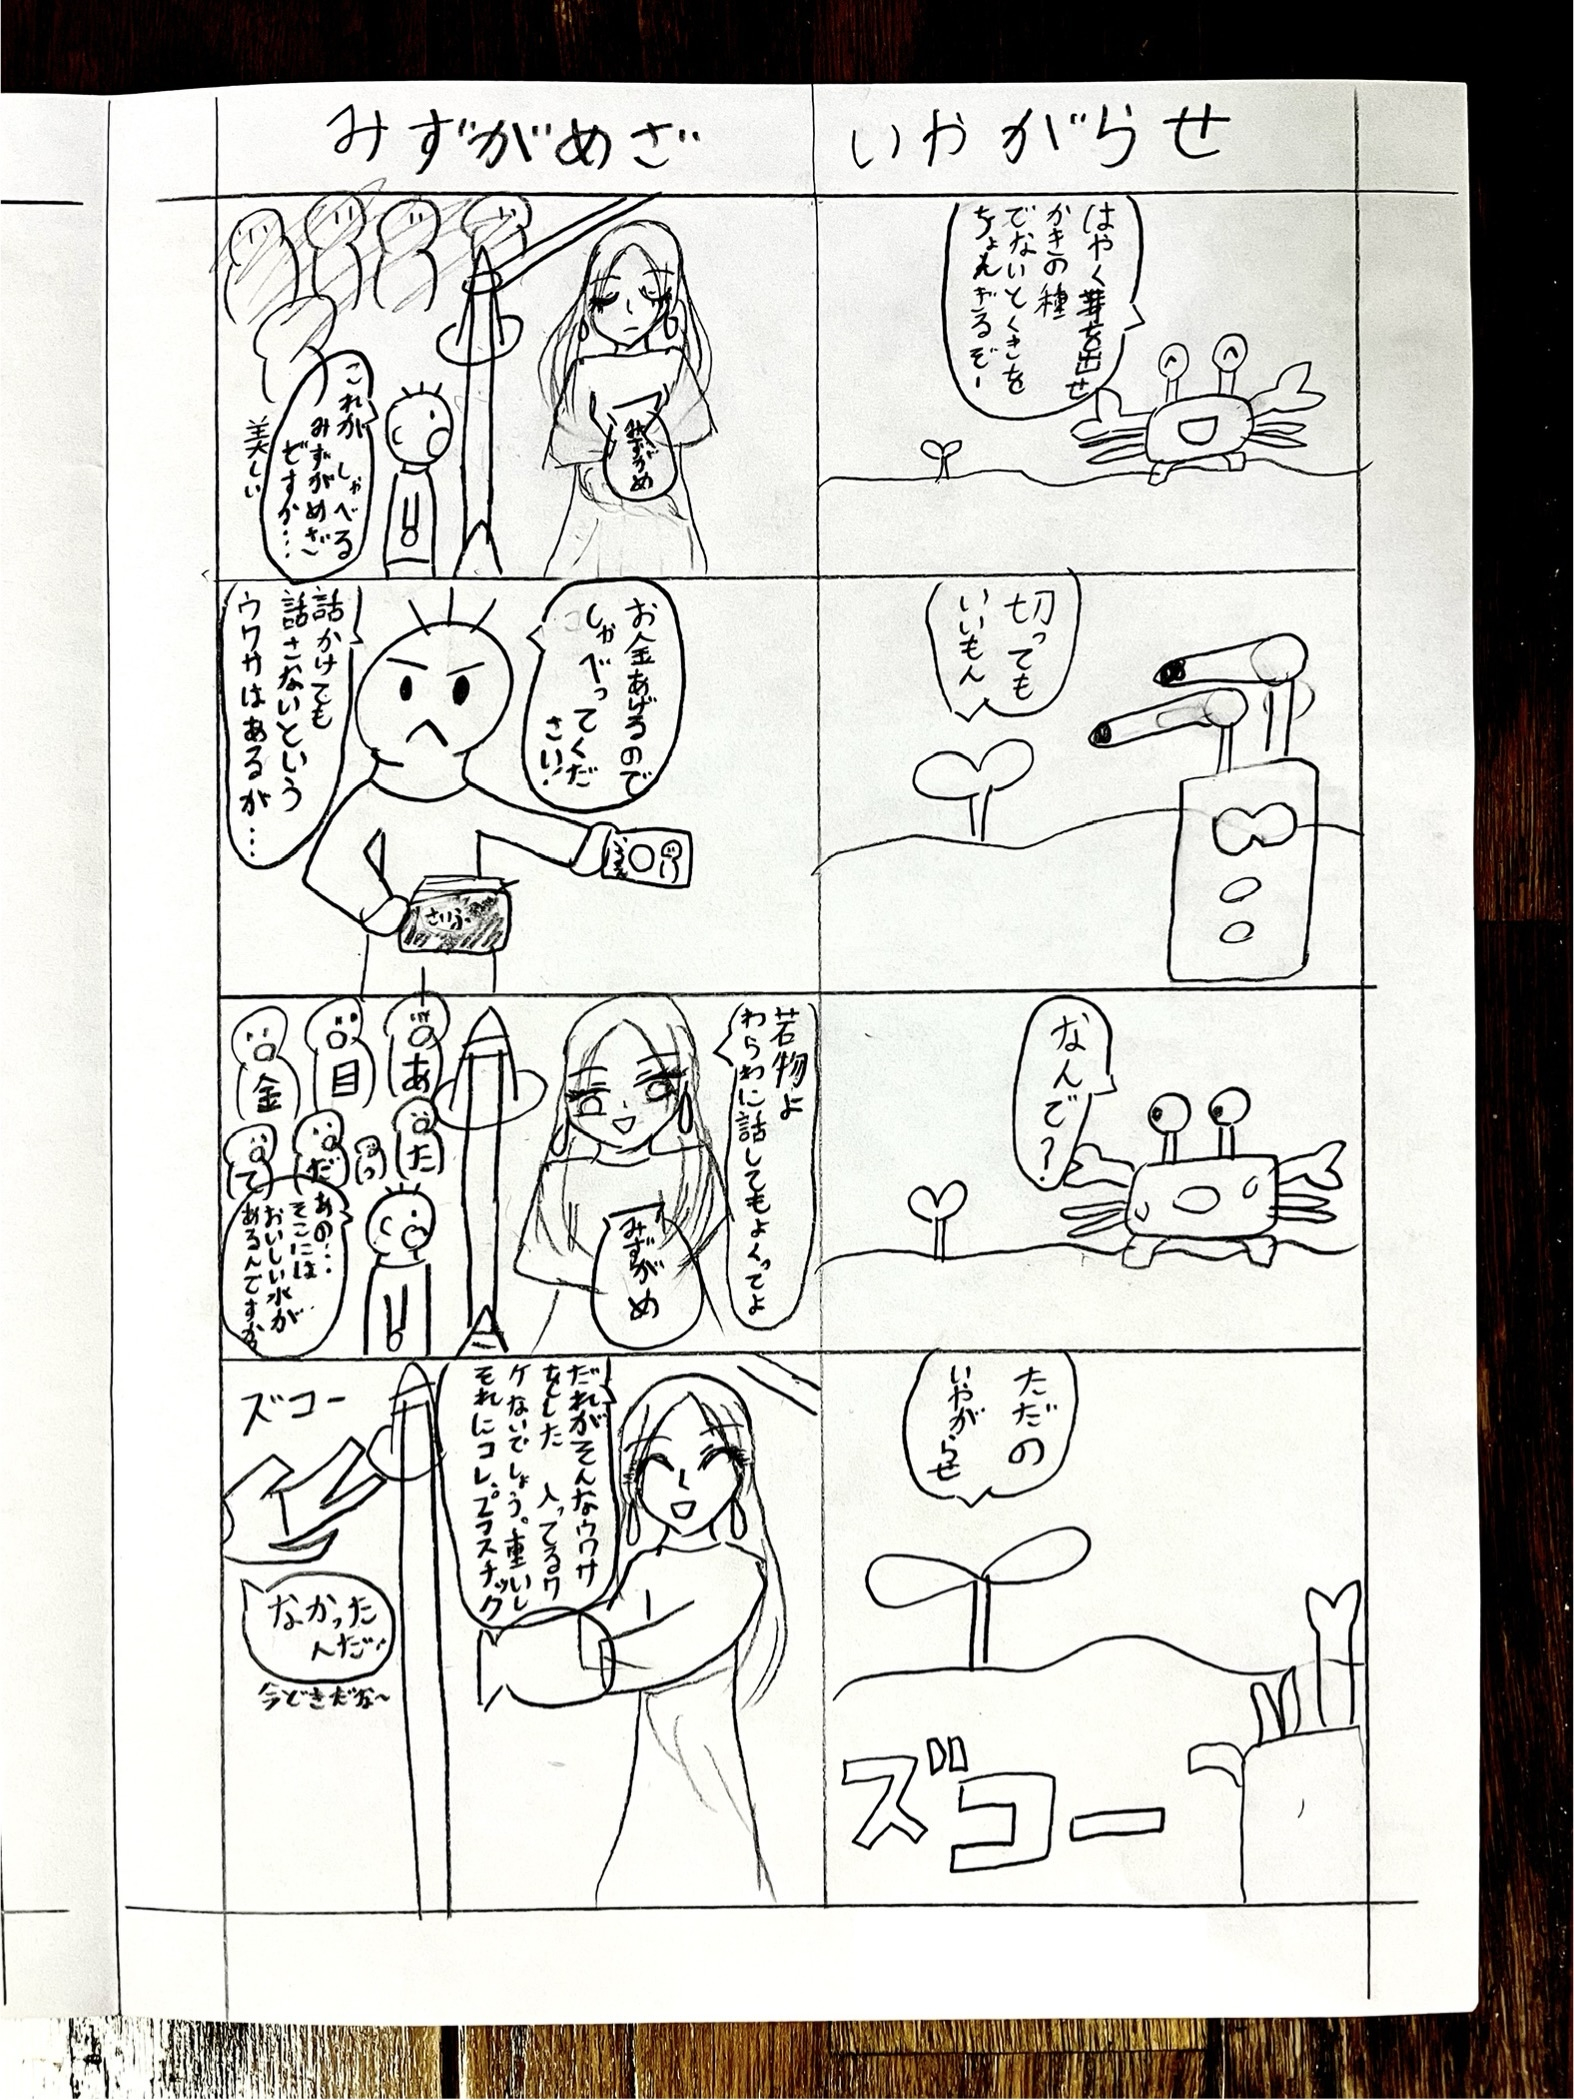 いやがらせ
はやく芽を出せ
かきの種
でないとくきを
ちょんぎるぞー
切っても
いいもん
なんで?
ただの
いやがらせ
ズコー
みずがめざ
みずがめ
これが しゃべる
みずがめざ
ですか…
美しい
お金あげるので
しゃべってくだ
さい!
話かけても
話さないという
ウワサはあるが…
さいふ
若物よ
わらわに話してもよくってよ
みずがめ
あ
目
金
た
だ
て
あの…
そこには
おいしい水が
あるんですか
だれがそんなウワサ
をした 入ってるワ
ケないでしょう。重いし
それにコレ、プラスチック
ズコー
なかった
んだ!
今どきだな~